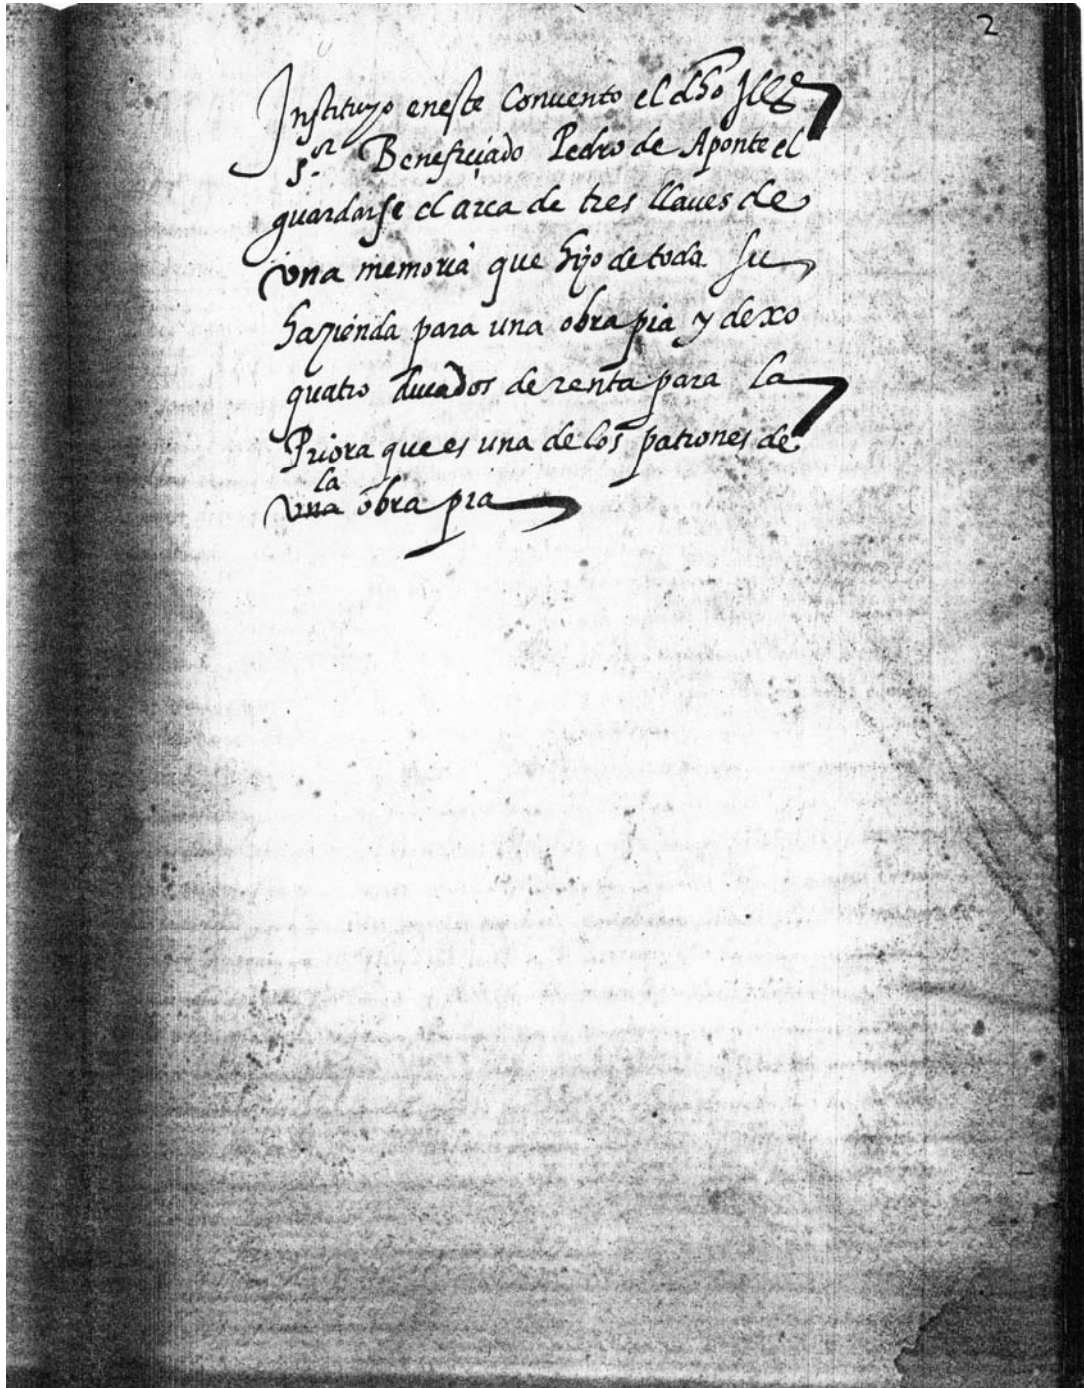 2
Instituyo en este Convento el dho Ille
s.or Benefiçiado Pedro de Aponte el
guardarse el arca de tres llaves de
vna memoria que hijo de toda su
hazienda para una obra pia y dexo
quatro ducados de renta para la
Priora que es una de los patrones de
la
vna obra pia